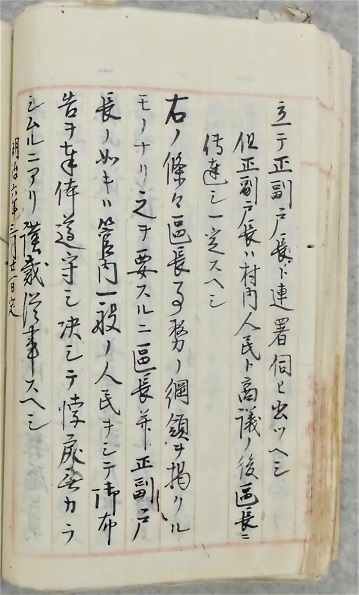 立テ正副戸長ト連署伺ヒ出ツヘシ
但正副戸長ハ村内人民ト商議ノ後區長ニ
傳達シ一定スヘシ
右ノ條々區長事務ノ綱領ヲ掲クル
モノナリ之ヲ要スルニ區長并正副戸
長ノ如キハ管内一般ノ人民ヲシテ御布
告ヲ奉体遵守シ决シテ悖戻無カラ
シムルニアリ謹裁従事スヘシ
明治六年三月廿一日定